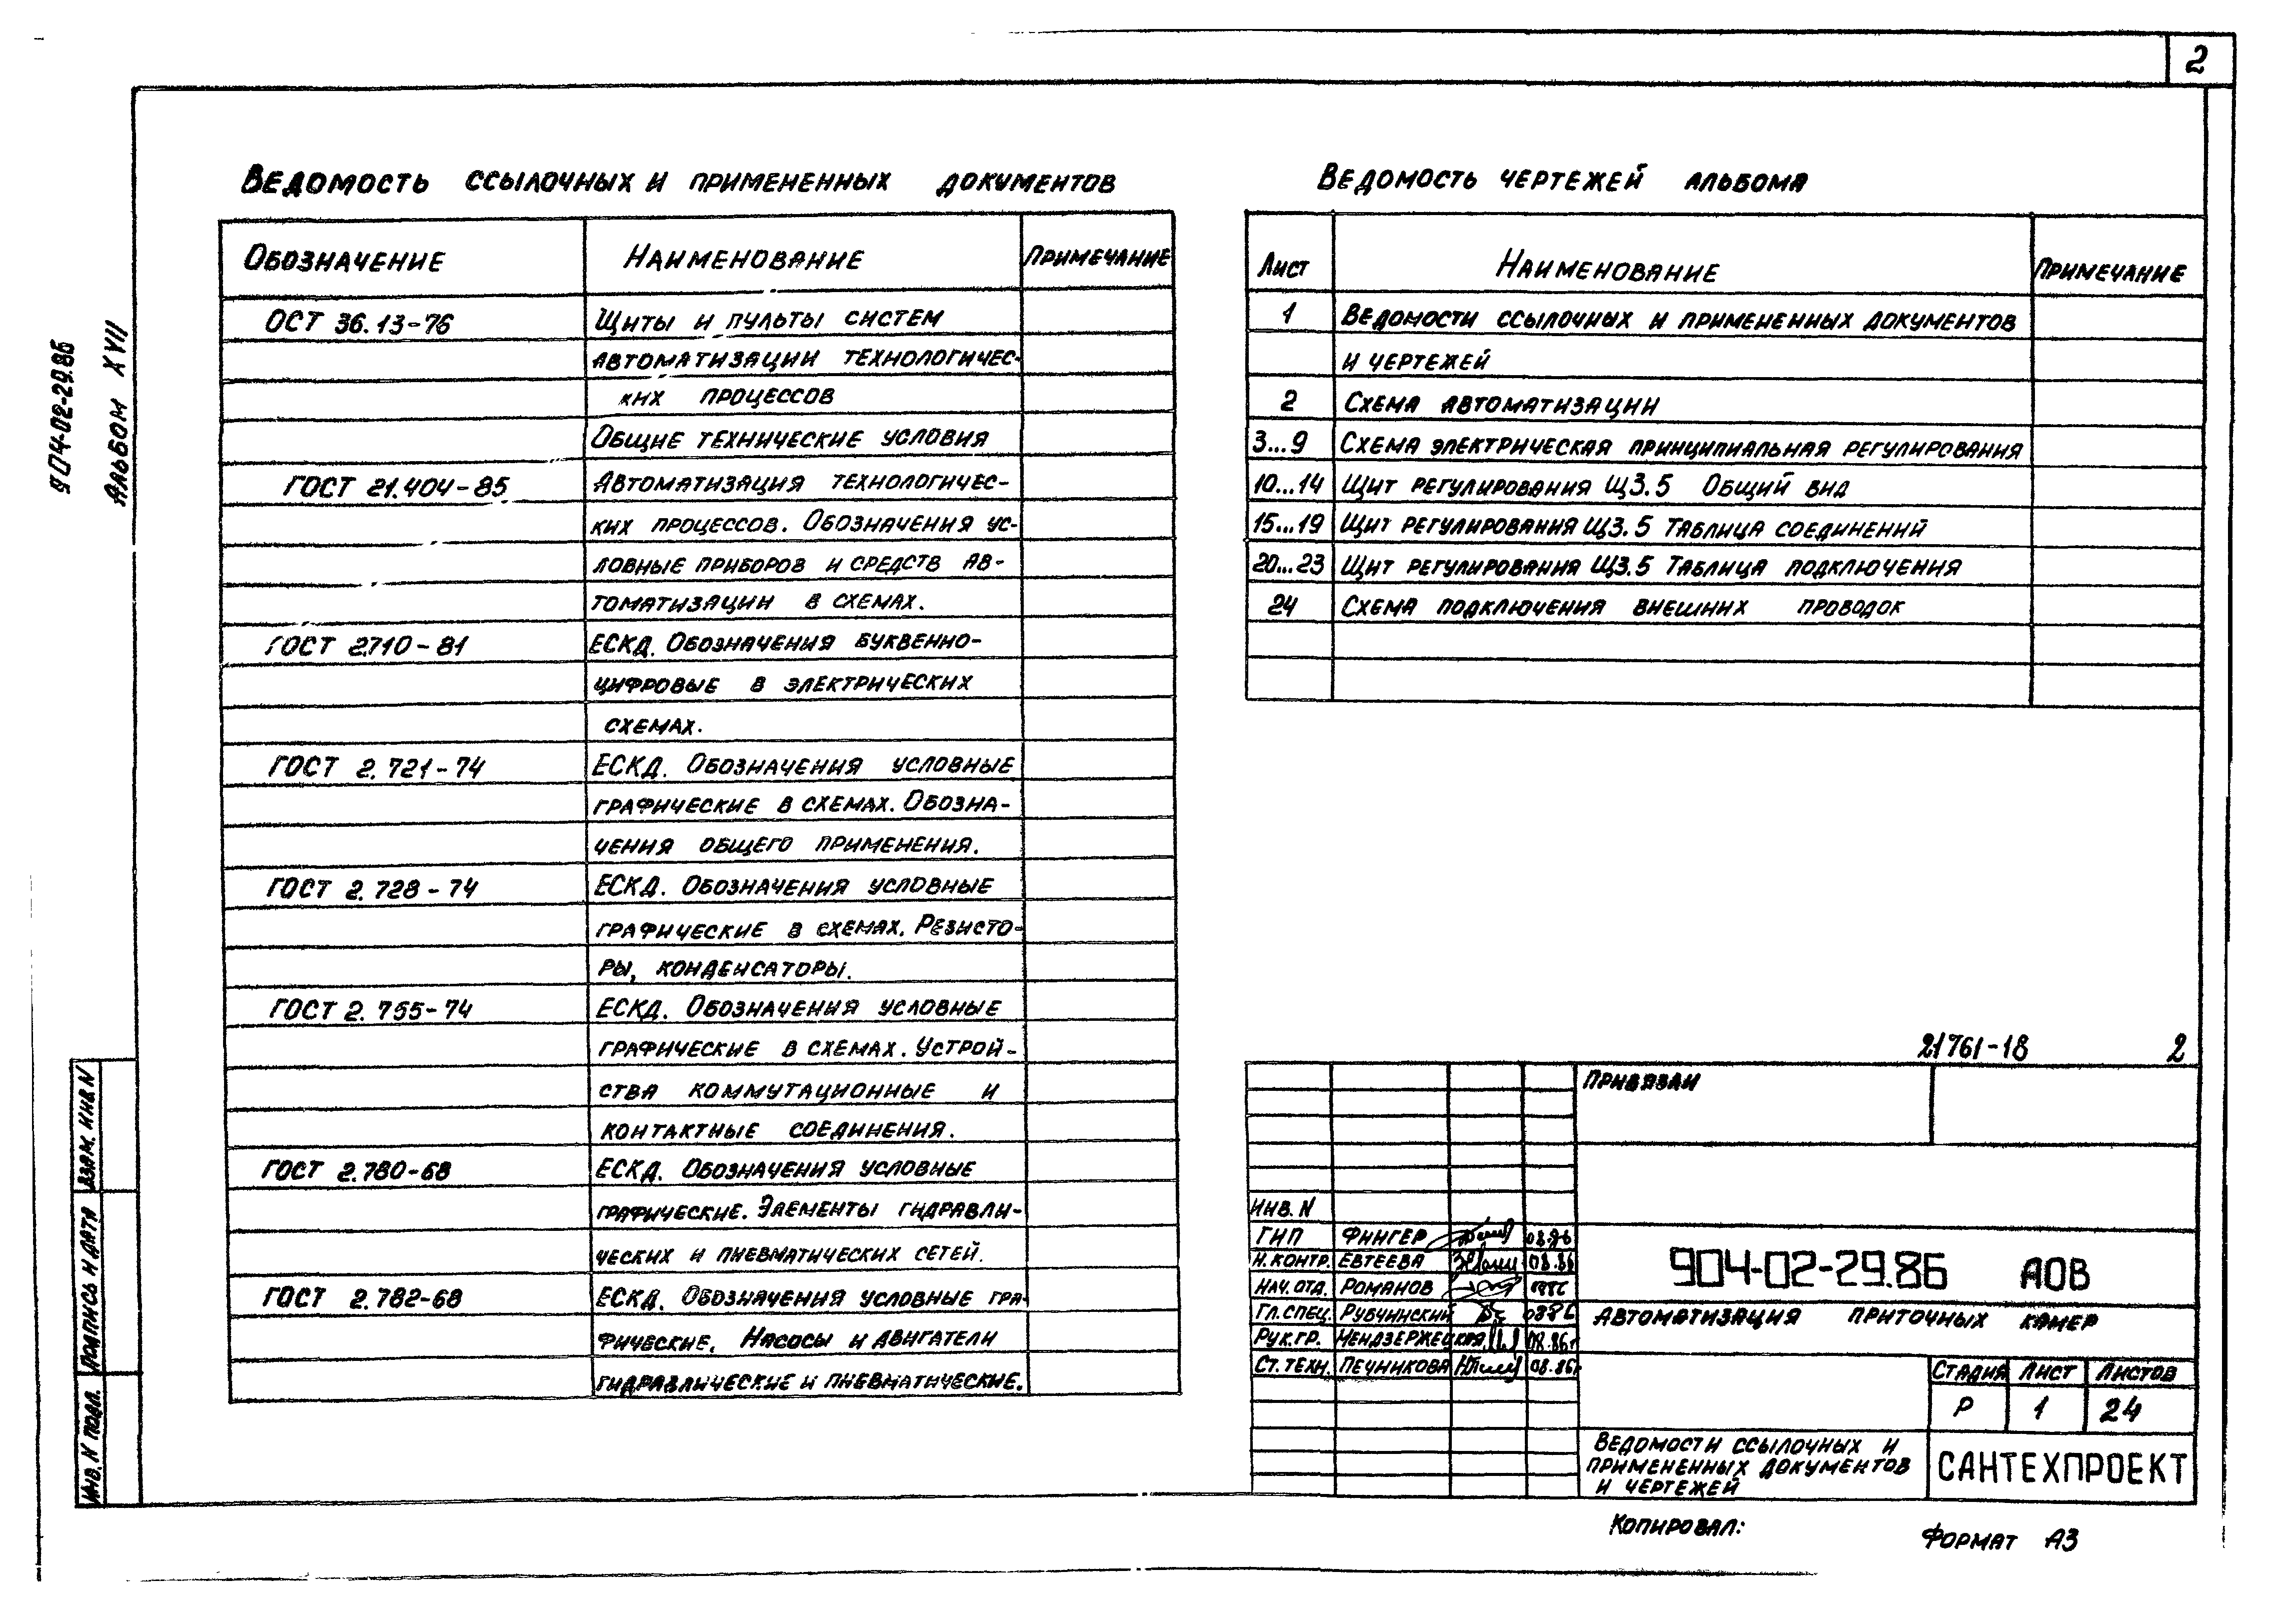 2
904-02-29.86
Альбом XVII
Ведомость ссылочных и примененных документов
Обозначение Наименование Примечание
ОСТ 36.13-76 Щиты и пульты систем
автоматизации технологичес-
ких процессов
Общие технические условия
ГОСТ 21.404-85 Автоматизация технологичес-
ких процессов. Обозначения ус-
ловные приборов и средств ав-
томатизации в схемах.
ГОСТ 2.710-81 ЕСКД. Обозначения буквенно-
цифровые в электрических
схемах.
ГОСТ 2.721-74 ЕСКД. Обозначения условные
графические в схемах. Обозна-
чения общего применения.
ГОСТ 2.728-74 ЕСКД. Обозначения условные
графические в схемах. Резисто-
ры, конденсаторы.
ГОСТ 2.755-74 ЕСКД. Обозначения условные
графические в схемах. Устрой-
ства коммутационные и
контактные соединения.
ГОСТ 2.780-68 ЕСКД. Обозначения условные
графические. Элементы гидравли-
ческих и пневматических сетей.
ГОСТ 2.782-68 ЕСКД. Обозначения условные гра-
фические. Насосы и двигатели
гидравлические и пневматические.
Ведомость чертежей альбома
Лист Наименование Примечание
1 Ведомости ссылочных и примененных документов
и чертежей
2 Схема автоматизации
3...9 Схема электрическая принципиальная регулирования
10...14 Щит регулирования Щ3.5 Общий вид
15...19 Щит регулирования Щ3.5 Таблица соединений
20...23 Щит регулирования Щ3.5 Таблица подключения
24 Схема подключения внешних проводок
21761-18 2
Привязан
Инв. N
ГИП Фингер 08.86
Н.контр. Евтеева 08.86
Нач.отд. Романов
Гл.спец. Рубчинский 08.86
Рук.гр. Мендзержецкая 08.86г
Ст.техн. Печникова 08.86г
904-02-29.86 АОВ
Автоматизация приточных камер
Стадия Лист Листов
Р 1 24
Ведомости ссылочных и
примененных документов
и чертежей
САНТЕХПРОЕКТ
Копировал: Формат А3
Взам. инв N
Подпись и дата
Инв. N подл.